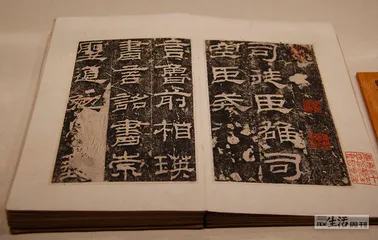 司徒臣雄司
空臣戒
言魯前相瑛
書言詔書崇
聖道勉藝
生活周刊